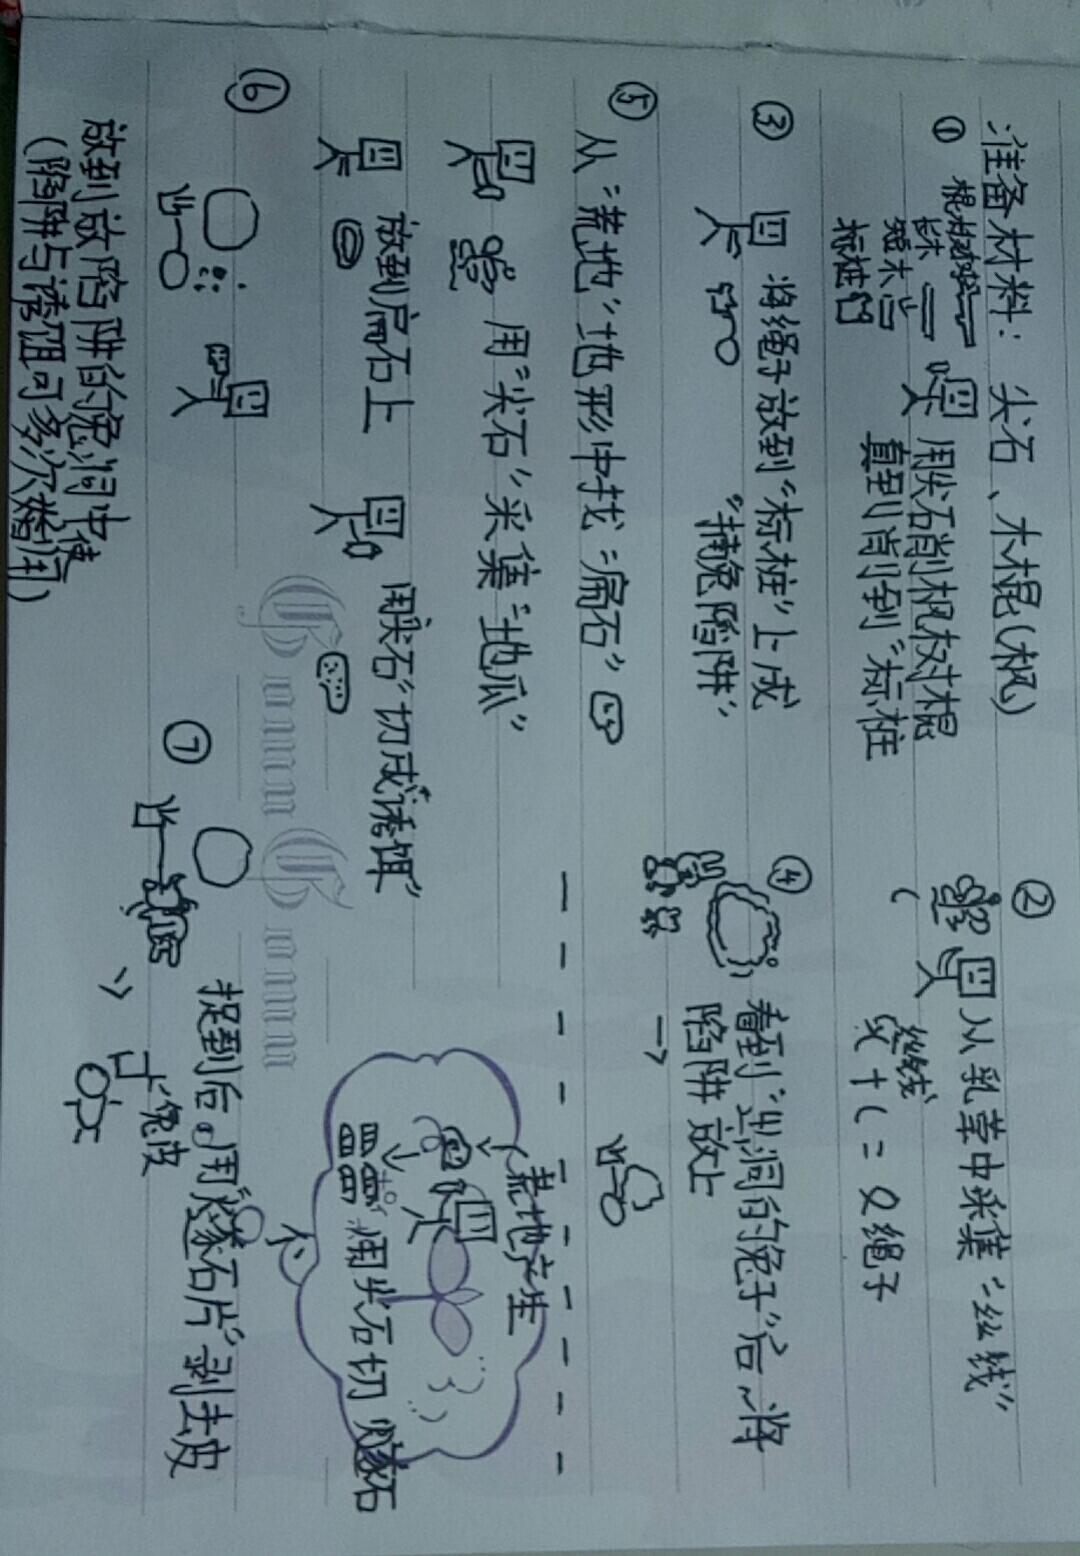 准备材料：尖石、木棍（枫）
①
长木
短木
标桩
用尖石削枫杈对棍
直到削到“标桩
②
从乳草中采集“丝线”
丝线
＝ 绳子
③
将绳子放到“标桩”上成
“捕兔陷阱”
④
看到“出洞的兔子”后，将
陷阱放上
⑤
从“荒地”地形中找“扁石”
用“尖石”采集“地瓜”
放到扁石上
用尖石“切成诱饵”
荒地产生
用尖石切燧石
⑥
放到放陷阱的兔洞中
（陷阱与诱饵可多次使用）
⑦
捉到后。用“燧石片”剥去皮
兔皮